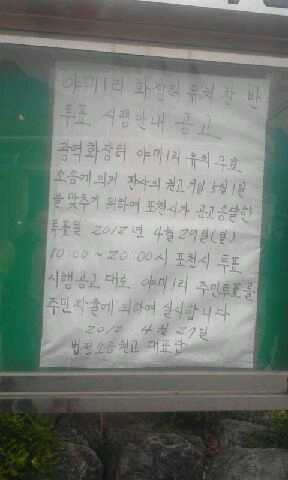 야미1리 화장터 유치 찬 반
투표 시행안내 공고
광역화장터 야미1리 유치 무효
소송에 의거 판사의 권고
을 맞추기 위하여 포천시가 공고송달한
투표일 2012년 4월 29일(일)
10:00~20:00시 포천시 투표
시행공고 대로 야미1리 주민투표를
주민 자율에 의하여 실시합니다
2012 4월 27일
법정소송원고 대표단